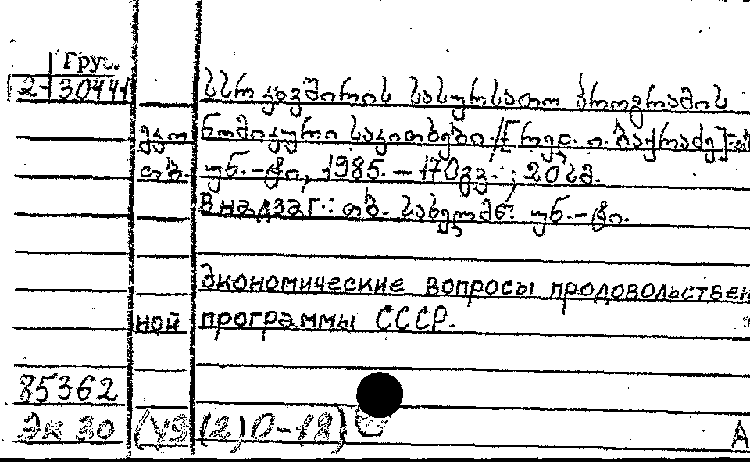 Груз.
2-30441
სსრ კავშირის სასურსათო პროგრამის
ეკონომიკური საკითხები/[რედ. ი. ბაქრაძე].-
თბ. უნ.-ტი, 1985.-170გვ.; 20სმ.
В надзаг.: თბ. სახელმწ. უნ.-ტი.
Экономические вопросы продовольствен
ной программы СССР.
85362
Эк 30 (У9(2)0-18)
А